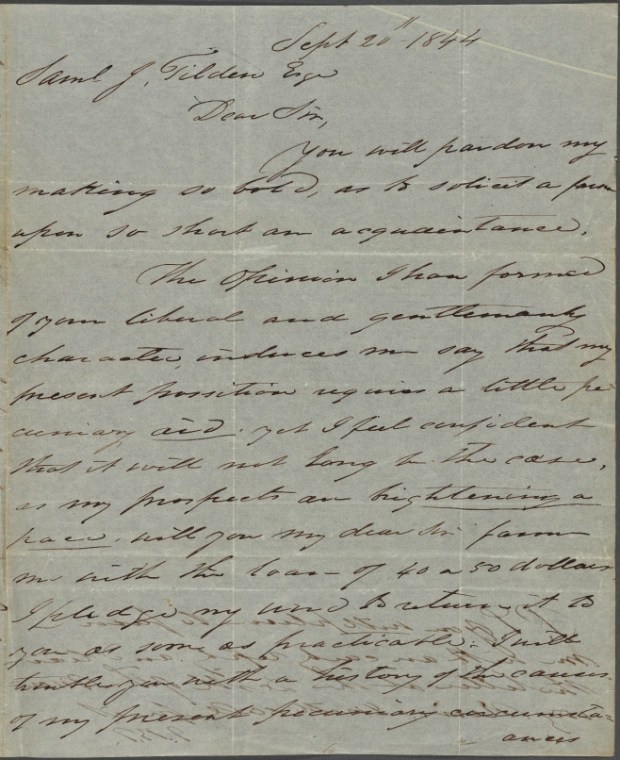 Sept 20" 1844
Saml J. Tilden Esqr
Dear Sir,
You will pardon my
making so bold, as to solicit a favour
upon so short an acquaintance.
The opinion I have formed
of your liberal and gentlemanly
character, induces me say that my
present possition requires a little pe
cuniary aid. yet I feel confident
that it will not long be the case,
as my prospects are brightening a
pace. will you my dear Sir favour
me with the loan of 40 a 50 dollars
I pledge my word to return it to
you as soon as practicable: I will
trouble you with a history of the causes
of my present pecuniary circumsta-
ances